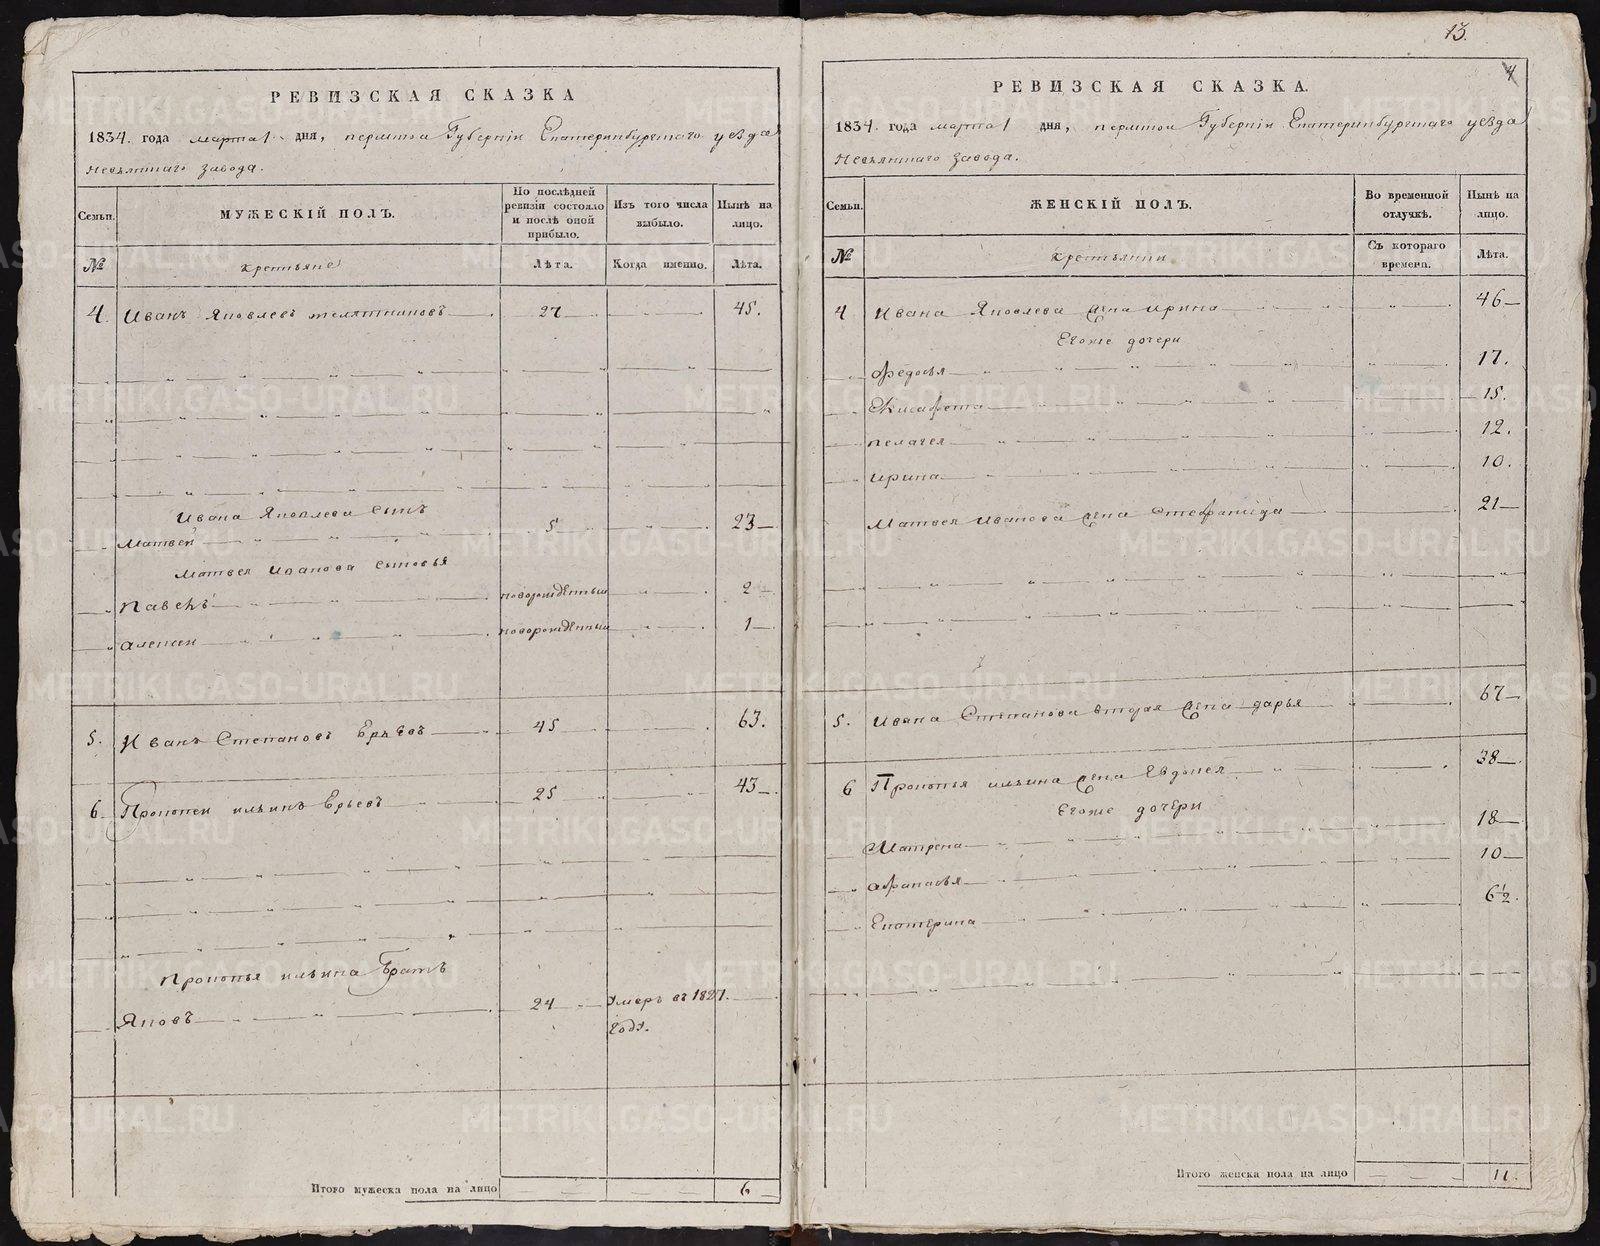 13.
4
РЕВИЗСКАЯ СКАЗКА
1834. года марта 1 дня, пермской Губернiи Екатеринбургскаго уезда
Невьянскаго завода.
Семьи.
МУЖЕСКIЙ ПОЛЪ.
По послѣдней ревизiи состояло и послѣ оной прибыло.
Изъ того числа выбыло.
Нынѣ на лицо.
№
крестьяне
Лѣта.
Когда именно.
Лѣта.
4. Иванъ Яковлевъ телятниковъ 27 45.
Ивана Яковлева сынъ
Матвей 5 23
Матвея Иванова сыновья
Павелъ новорожденный 2
алексей новорожденный 1
5. Иванъ Степановъ Ерьевъ 45 63.
6. Прокопей ильинъ Ерьевъ 25 43
Прокопья ильина Братъ
Яковъ 24 Умеръ въ 1827.
годѣ.
Итого мужеска пола на лицо 6
РЕВИЗСКАЯ СКАЗКА.
1834. года марта 1 дня, пермской Губернiи Екатеринбургскаго уезда
Невьянскаго завода.
Семьи.
ЖЕНСКIЙ ПОЛЪ.
Во временной отлучкѣ.
Нынѣ на лицо.
№
крестьянки
Съ котораго времени.
Лѣта.
4 Ивана Яковлева жена ирина 46
Егоже дочери
Федосья 17.
Елисафета 15.
пелагея 12.
ирина 10.
Матвея Иванова жена Стефанида 21
5. Ивана Степанова вторая жена дарья 67
6 Прокопья ильина жена Евдокея 38
Егоже дочери
Матрена 18
афанасья 10
Екатерина 6½.
Итого женска пола на лицо 11.
METRIKI.GASO-URAL.RU